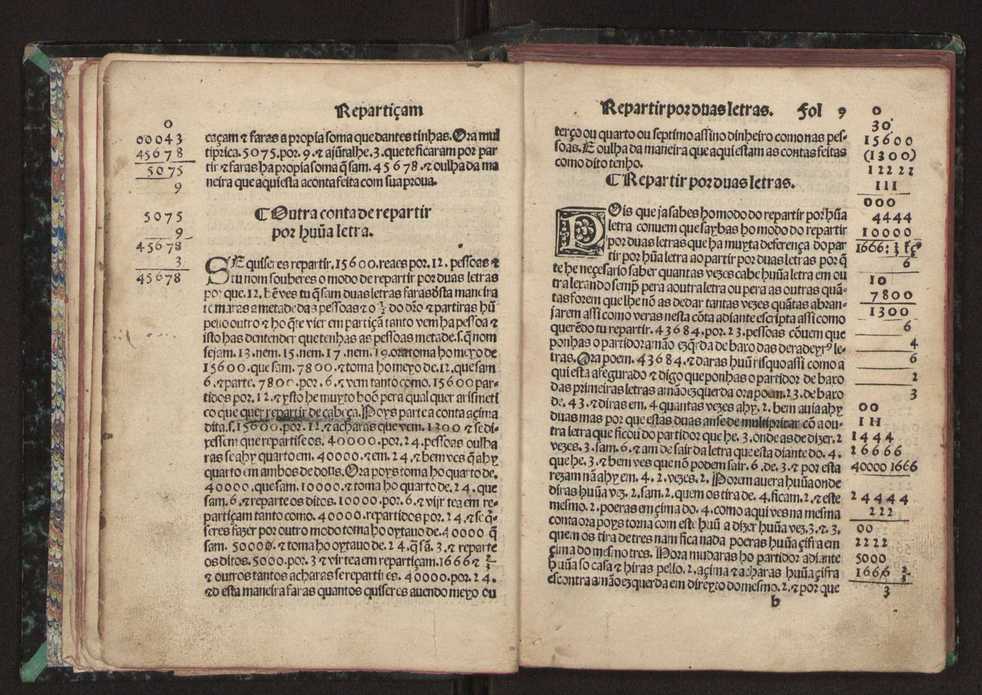 Repartiçam
0
00043
45678
5075
9
5075
9
45678
3
45678
caçam & faras a propia soma que dantes tinhas. Ora mul
tiprica. 5075. por. 9. & ajũtalhe. 3. que te ficaram por par
tir & faras ha propia soma q̃ sam. 45678. & oulha da ma
neira que aqui esta a conta feita com sua proua.
Outra conta de repartir
por huũa letra.
SE quiseres repartir. 15600. reaes por. 12. pessoas &
tu nom souberes o modo de repartir por duas letras
por que. 12. bẽ ves tu q̃ sam duas letras faras dsta maneira
tomaras a metade das pessoas & o ½ do dr̃o & partiras hũ
pello outro & ho q̃ te vier em partiçã tanto vem ha pessoa &
isto has dentender que tenhas as pessoas metade. s. q̃ nom
sejam. 13. nem. 15. nem. 17. nem. 19. ora toma ho meyo de
15600. que sam. 7800. & toma ho meyo de. 12. que sam
6. & parte. 7800. por. 6. & vem tanto como. 15600 par-
tidos por. 12. & ysto he muyto boõ pera qual quer arismeti
co que quer repartir de cabeça. Poys parte a conta açima
dita. s. 15600. por. 12. & acharas que vem. 1300 & se di-
xessem que repartiseos. 40000. por. 24. pessoas oulha
ras se ahy quarto em. 40000. & em. 24. & bem ves q̃ ahy
quarto em ambos de dous. Ora poys toma ho quarto de.
40000. que sam. 10000. & toma ho quarto de. 24. que
sam. 6. & reparte os ditos. 10000. por. 6. & vijr tea em re-
partiçam tanto como. 40000. repartidos por. 24. & se q̃-
seres fazer por outro modo toma ho oytauo de. 40000 q̃
sam. 5000. & toma ho oytauo de. 24. q̃ sã. 3. & reparte
os ditos. 5000. por. 3 & vir tea em repartiçam. 1666 & ⅔
& outros tantos acharas se repartires. 40000. por. 24.
& desta maneira faras quantos quiseres auendo meyo ou
Repartir por duas letras. Fol 9
terço ou quarto ou septimo assi no dinheiro como nas pes-
soas. E oulha da maneira que aqui estam as contas feitas
como dito tenho.
Repartir por duas letras.
POis que ja sabes ho modo do repartir por hũa
letra conuem que saybas ho modo do repartir
por duas letras que ha muyta deferença do par
tir por hũa letra ao partir por duas letras por q̃
te he neçesario saber quantas vezes cabe huũa letra em ou
tra leixando semp̃ pera a outra letra ou pera as outras quã-
tas forem que lhe nõ as de dar tantas vezes quãtas abran-
jarem assi como veras nesta cõta adiante escripta assi como
querẽdo tu repartir. 43684. por. 23. pessoas cõuem que
ponhas o partidor a mão ezq̃rda de baxo das deradeyrªs le-
tras. Ora poem. 43684. & daras huũ risquo assi como a
qui esta asegurado & digo que ponhas o partidor de baxo
das primeiras letras a mão ezquerda ora poem. 23. de baxo
de. 43. & diras em. 4 quantas vezes ahy. 2. bem auia ahy
duas mas por que estas duas anse de multipricar cõ a ou-
tra letra que ficou do partidor que he. 3. onde as de dizer. 2
vezes. 3. sam. 6. & am de sair da letra que esta diante do. 4.
que he. 3. & bem ves que nõ podem sair. 6. de. 3. & por esta
rezam nã ahy em. 4. 2. vezes. 2. Porem auera huũa onde
diras huũa vez. 2. sam. 2. quem os tira de. 4. ficam. 2. & este
mesmo. 2. poeras em çima do. 4. como aqui ves na mesma
conta ora poys torna com este huũ a dizer huũa vez. 3. & 3.
quem os tira de tres nam fica nada poeras huũa çifra em
çima do mesmo tres. Nora mudaras ho partidor adiante
huũa so casa & hiras pello. 2. açima & acharas huũa çifra
escontra a mão ezquerda em direyto do mesmo. 2. & por que
b
0
30
15600
(1300)
12222
111
000
4444
10000
6
10
7800
1300
6
4
6
2
3
00
1444
26666
40000 1666
24444
222
00
2222
5000
1666 ⅔
3